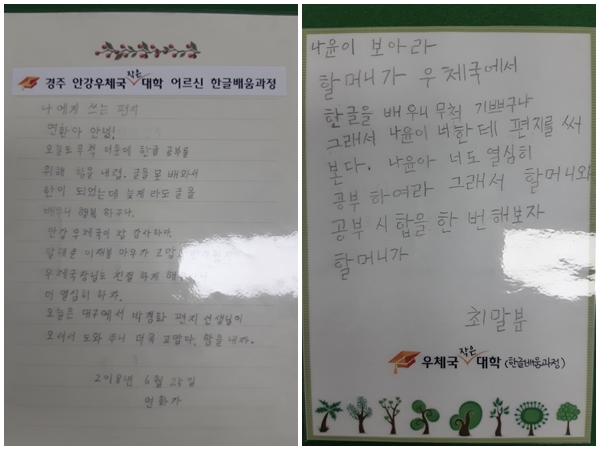 경주 안강우체국 작은 대학 어르신 한글배움과정
나에게 쓰는 편지
연환아 안녕!
오늘도 무척 더운데 한글 공부를
위해 힘을 내렴. 글을 못 배와서
한이 되었는데 늦게 라도 글을
배우니 행복 하구나.
안강 우체국이 참 감사하다.
우체국장님도 친절 하게
더 열심히 하자.
오늘은 대구에서 박경화 편지 선생님이
오셔서 도와 주니 더욱 고맙다. 힘을 내자.
2018년 6월 25일
나윤이 보아라
할머니가 우체국에서
한글을 배우니 무척 기쁘구나
그래서 나윤이 너한테 편지를 써
본다. 나윤아 너도 열심히
공부 하여라 그래서 할머니와
공부 시합을 한 번 해보자
할머니가
최말분
우체국 작은 대학 (한글배움과정)